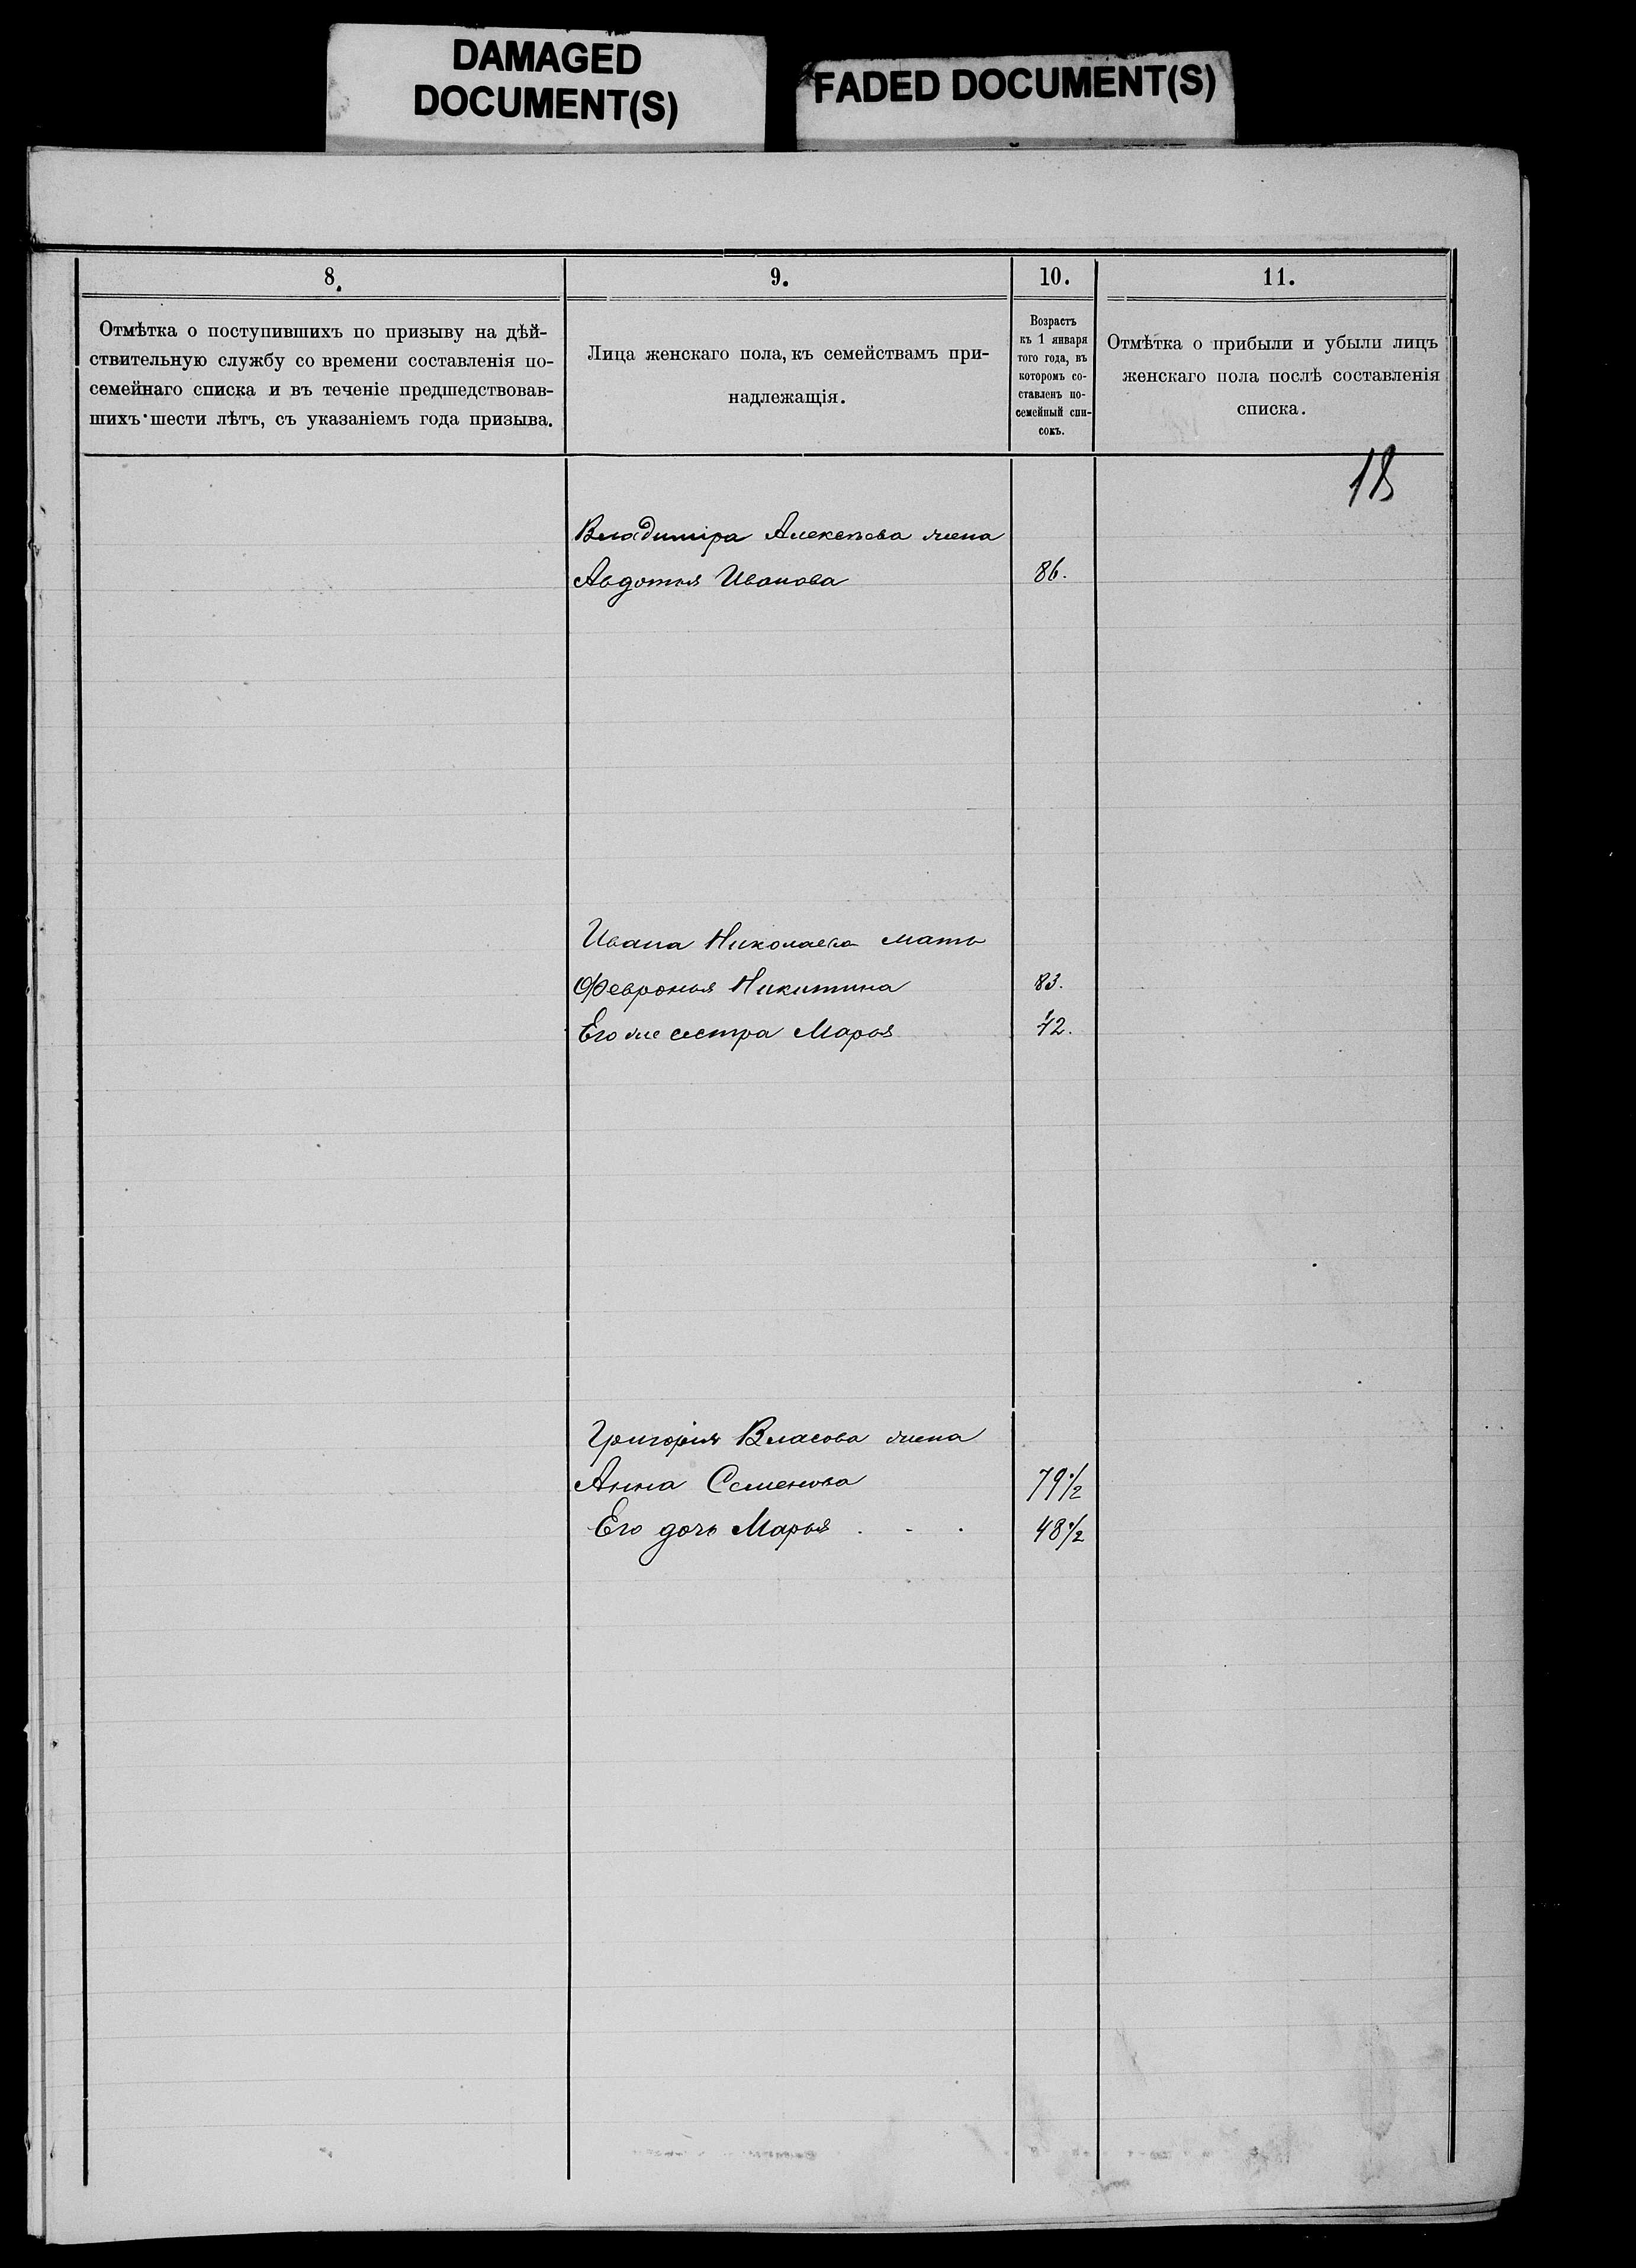 DAMAGED
DOCUMENT(S)
FADED DOCUMENT(S)
8.
Отмѣтка о поступившихъ по призыву на дѣй-
ствительную службу со времени составленія по-
семейнаго списка и въ теченіе предшедствовав-
шихъ шести лѣтъ, съ указаніемъ года призыва.
9.
Лица женскаго пола, къ семействамъ при-
надлежащія.
10.
Возрастъ
къ 1 января
того года, въ
которомъ со-
ставленъ по-
семейный спи-
сокъ.
11.
Отмѣтка о прибыли и убыли лицъ
женскаго пола послѣ составленія
списка.
18
Владиміра Алексѣева жена
Авдотья Иванова 86.
Ивана Николаева мать
Февронья Никитина 83.
Его же сестра Марья 42.
Григорія Власова жена
Анна Семенова 79½
Его дочь Марья . . . 48½